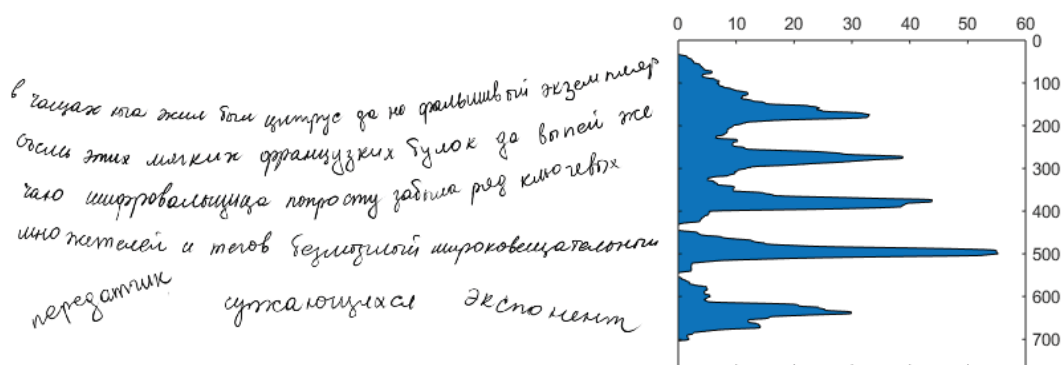 в чащах юга жил был цитрус да но фальшивый экземпляр
съешь этих мягких французких булок да выпей же
чаю шифровальщица попросту забыла ряд ключевых
множителей и тегов безмозглый широковещательный
передатчик сужающихся экспонент
0 10 20 30 40 50 60
0
100
200
300
400
500
600
700